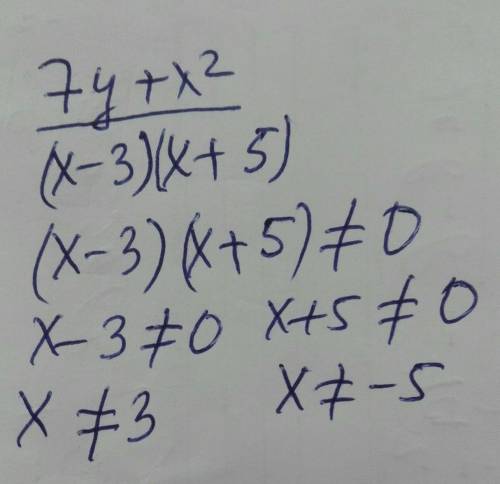 7y+x²
(x-3)(x+5)
(x-3)(x+5)≠0
x-3≠0 x+5≠0
x≠3 x≠-5